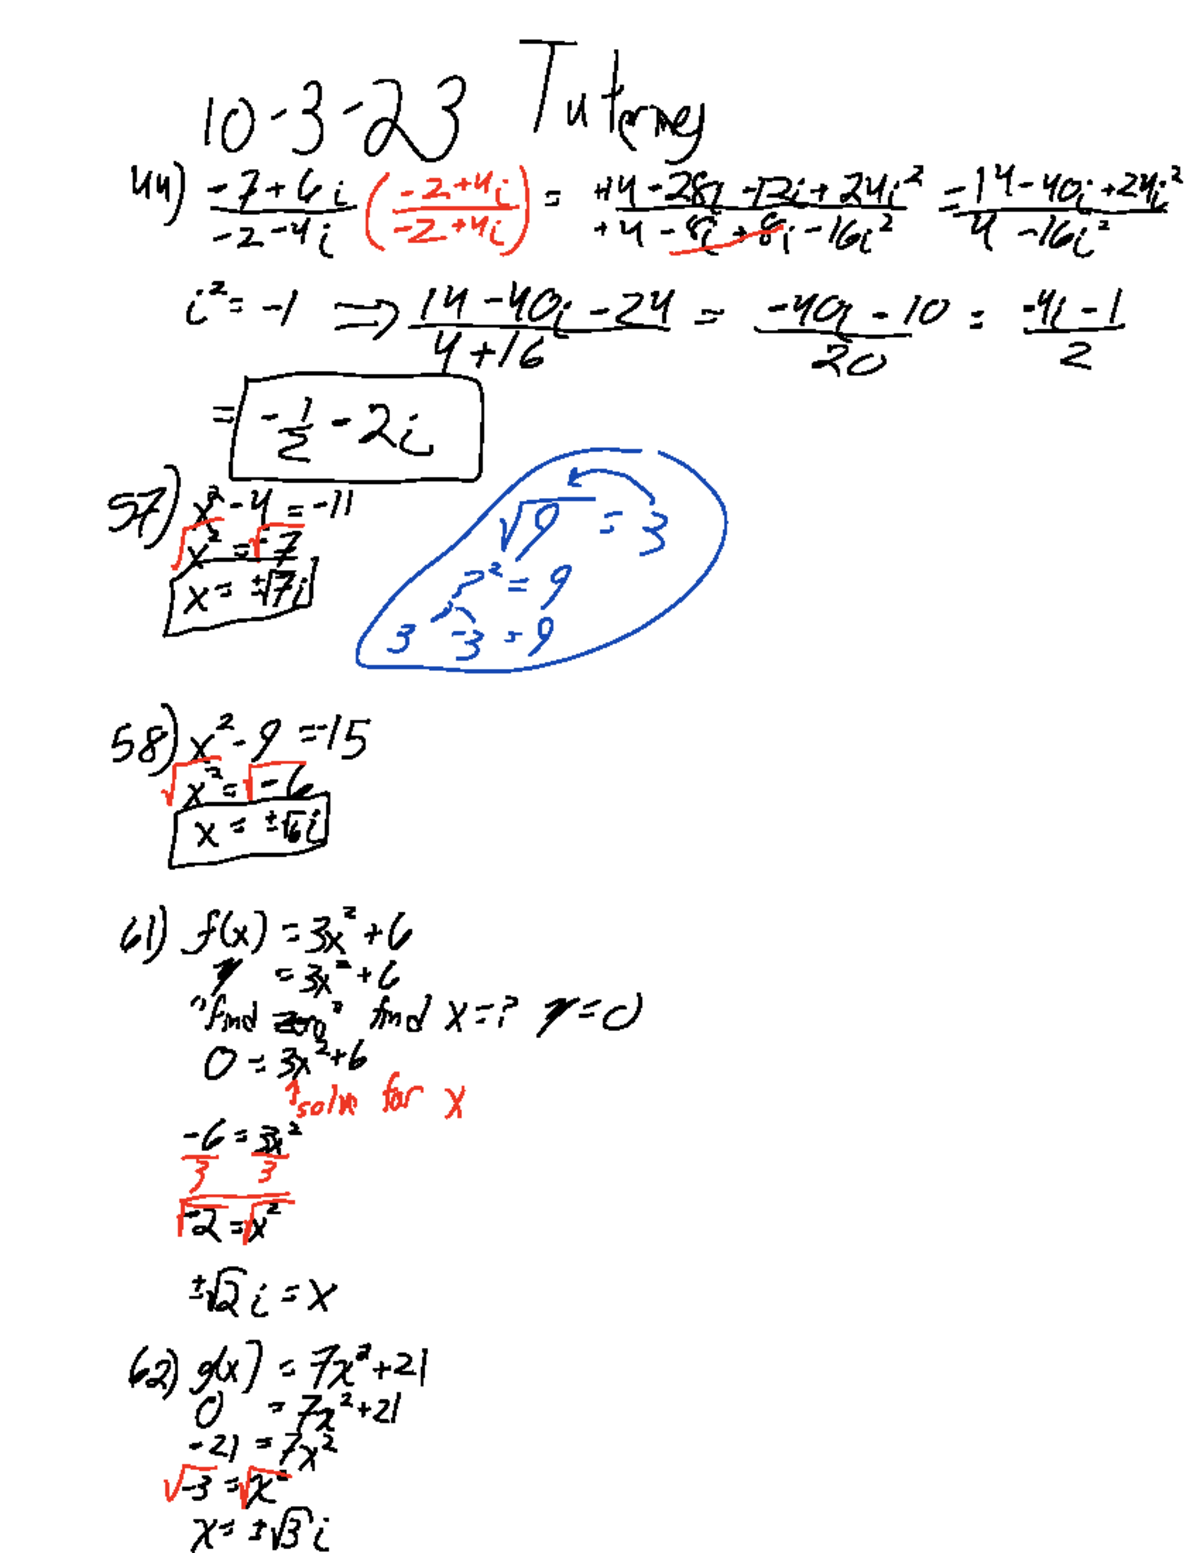 10-3-23 Tutoring
44) (-7+6i)/(-2-4i) ((-2+4i)/(-2+4i)) = (+14-28i-12i+24i²)/(+4-8i+8i-16i²) = (14-40i+24i²)/(4-16i²)
i² = -1 ⟹ (14-40i-24)/(4+16) = (-40i-10)/20 = (-4i-1)/2
= -1/2 - 2i
57) x²-4 = -11
√x² = √-7
x = ±√7i
√9 = 3
?² = 9
3 -3 = 9
58) x²-9 = -15
√x² = √-6
x = ±√6i
61) f(x) = 3x²+6
y = 3x²+6
"find zero" find x=? y=0
0 = 3x²+6
↑ solve for x
-6 = 3x²
3 3
√-2 = √x²
±√2 i = x
62) g(x) = 7x²+21
0 = 7x²+21
-21 = 7x²
√-3 = √x²
x = ±√3 i